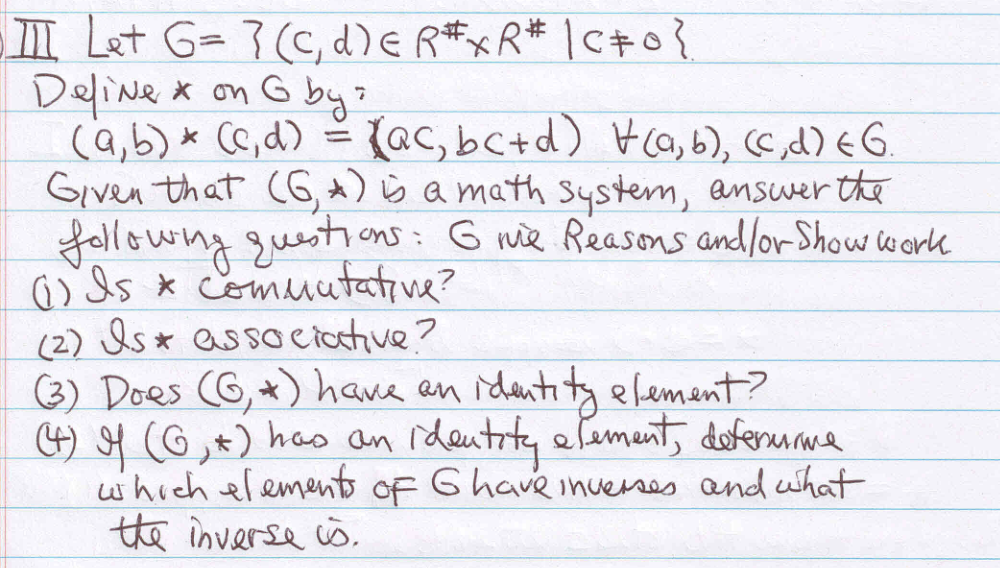 III Let G= {(c,d) ∈ R#xR# | c≠0}
Define * on G by:
(a,b) * (c,d) = (ac, bc+d) ∀(a,b), (c,d) ∈ G.
Given that (G,*) is a math system, answer the
following questions: Give Reasons and/or Show work
(1) Is * commutative?
(2) Is * associative?
(3) Does (G,*) have an identity element?
(4) If (G,*) has an identity element, determine
which elements of G have inverses and what
the inverse is.